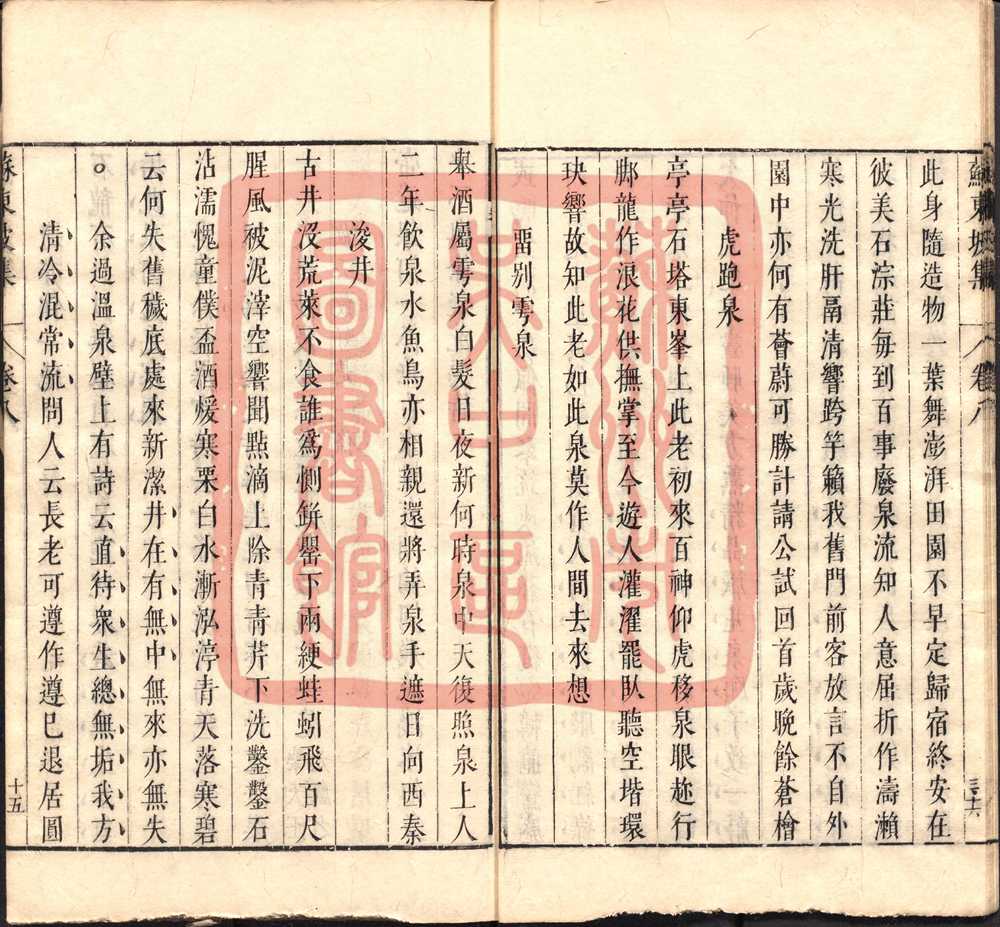 蘇東坡集 卷八
此身隨造物一葉舞澎湃田園不早定歸宿終安在
彼美石淙莊每到百事廢泉流知人意屈折作濤瀨
寒光洗肝鬲清響跨竽籟我舊門前客放言不自外
園中亦何有薈蔚可勝計請公試回首歲晚餘蒼檜
虎跑泉
亭亭石塔東峯上此老初來百神仰虎移泉眼趂行
脚龍作浪花供撫掌至今遊人灌濯罷臥聽空堦環
玦響故知此老如此泉莫作人間去來想
畱別雩泉
舉酒屬雩泉白髮日夜新何時泉中天復照泉上人
二年飲泉水魚鳥亦相親還將弄泉手遮日向西秦
浚井
古井沒荒萊不食誰爲惻缾罌下兩綆蛙蚓飛百尺
腥風被泥滓空響聞點滴上除青青芹下洗鑿鑿石
沾濡愧童僕盃酒煖寒栗白水漸泓渟青天落寒碧
云何失舊穢底處來新潔井在有無中無來亦無失
。余過溫泉壁上有詩云直待衆生總無垢我方
清冷混常流問人云長老可遵作遵已退居圓
蘇東坡集 卷八 十五
蘇州市立圖書館